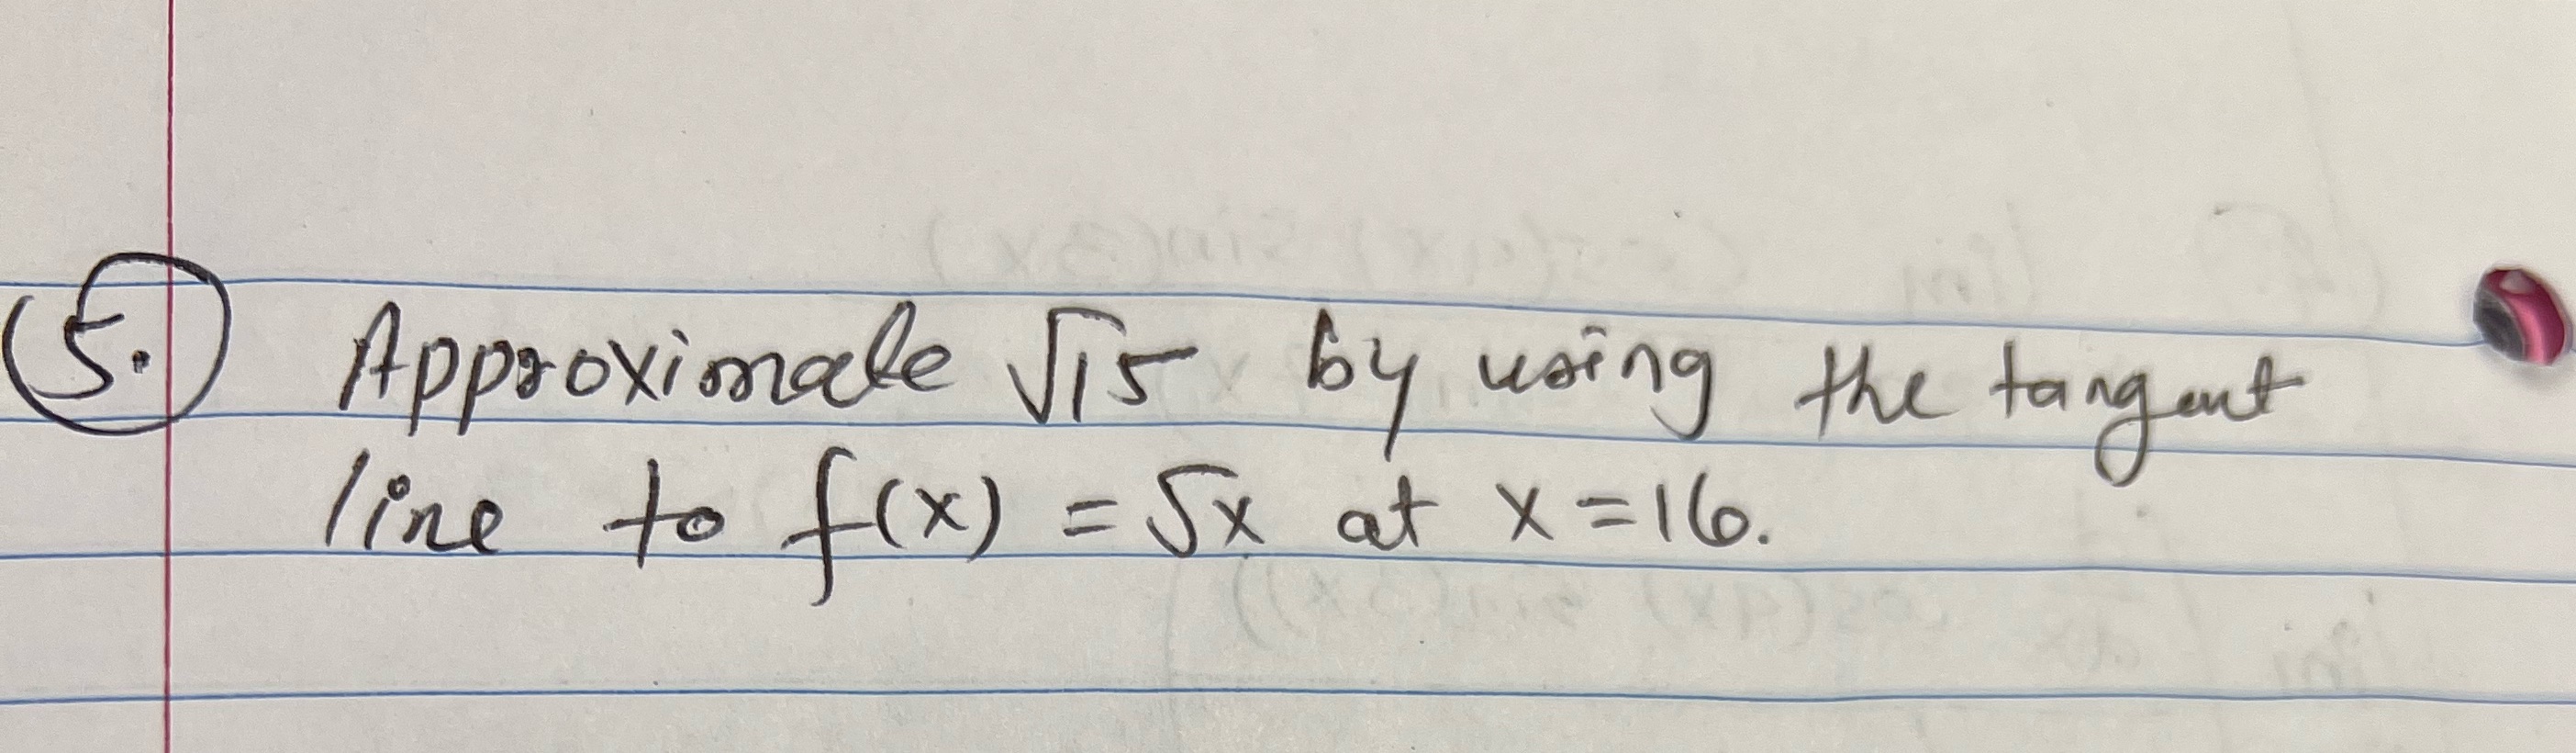 5. Approximate √15 by using the tangent
line to f(x) = √x at x = 16.